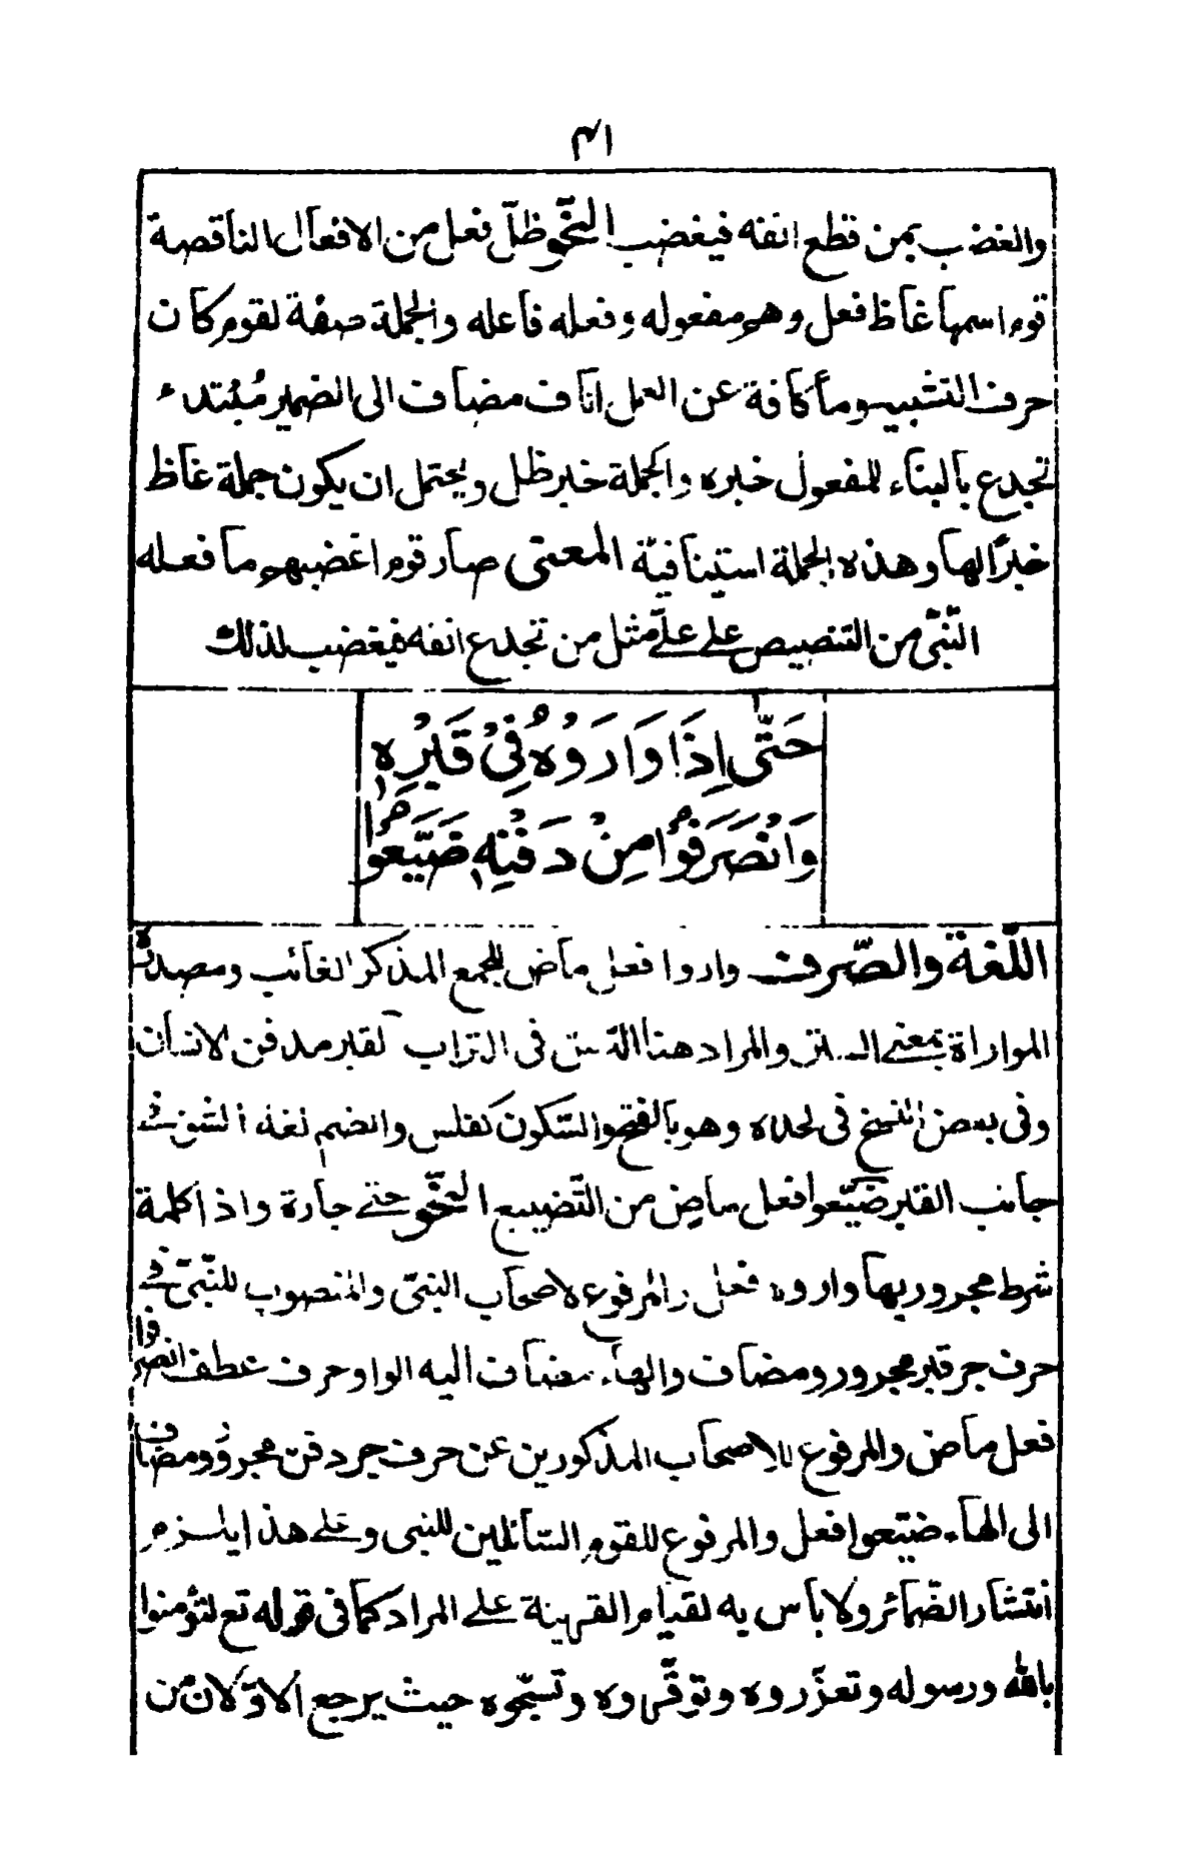 ۴۱
والغضب بمن قطع انفه فيغضب النّحو ظلّ فعل من الافعال الناقصة
قوم اسمها غاظ فعل وهم مفعوله وفعله فاعله والجملة صفة لقوم كان
حرف التشبيه وما كافة عن العمل اناف مضاف الى الضمير مُبتدء
تجدع بالبناء للمفعول خبره والجملة خبر ظل ويحتمل ان يكون جملة غاظ
خبرًا لها وهذه الجملة استينافيّة المعنى صار قوم اغضبهم ما فعله
النّبيّ من التنصيص على علىّ مثل من تجدع انفه فيغضب لذلك
حَتّٰى اِذَا وَارَوْهُ فِىْ قَبْرِهٖ
وَانْصَرَفُوْا مِنْ دَفْنِهٖ ضَيَّعُوْا
اللّغة والصّرف واروا فعل ماض للجمع المذكر الغائب ومصدره
المواراة بمعنى الستر والمراد هنا الدّس فى التراب القبر مدفن الانسان
وفى بعض النسخ فى لحده وهو بالفتح والسّكون كفلس والضم لغة الشق فى
جانب القبر ضيّعوا فعل ماضٍ من التّضييع النّحو حتى جارة واذا كلمة
شرط مجرور بها واروه فعل والمرفوع لاصحاب النبىّ والمنصوب للنّبىّ فى
حرف جر قبر مجرور ومضاف والهاء مضاف اليه الواو حرف عطف انصرفوا
فعل ماض والمرفوع للاصحاب المذكورين عن حرف جر دفن مجرور ومضاف
الى الهاء ضيّعوا فعل والمرفوع للقوم السّائلين للنبى وعلى هذا يلزم
انتشار الضّمائر ولا باس به لقيام القرينة على المراد كما فى قوله تع لتؤمنوا
بالله ورسوله وتعزّروه وتوقّروه وتسبّحوه حيث يرجع الاوّلان من